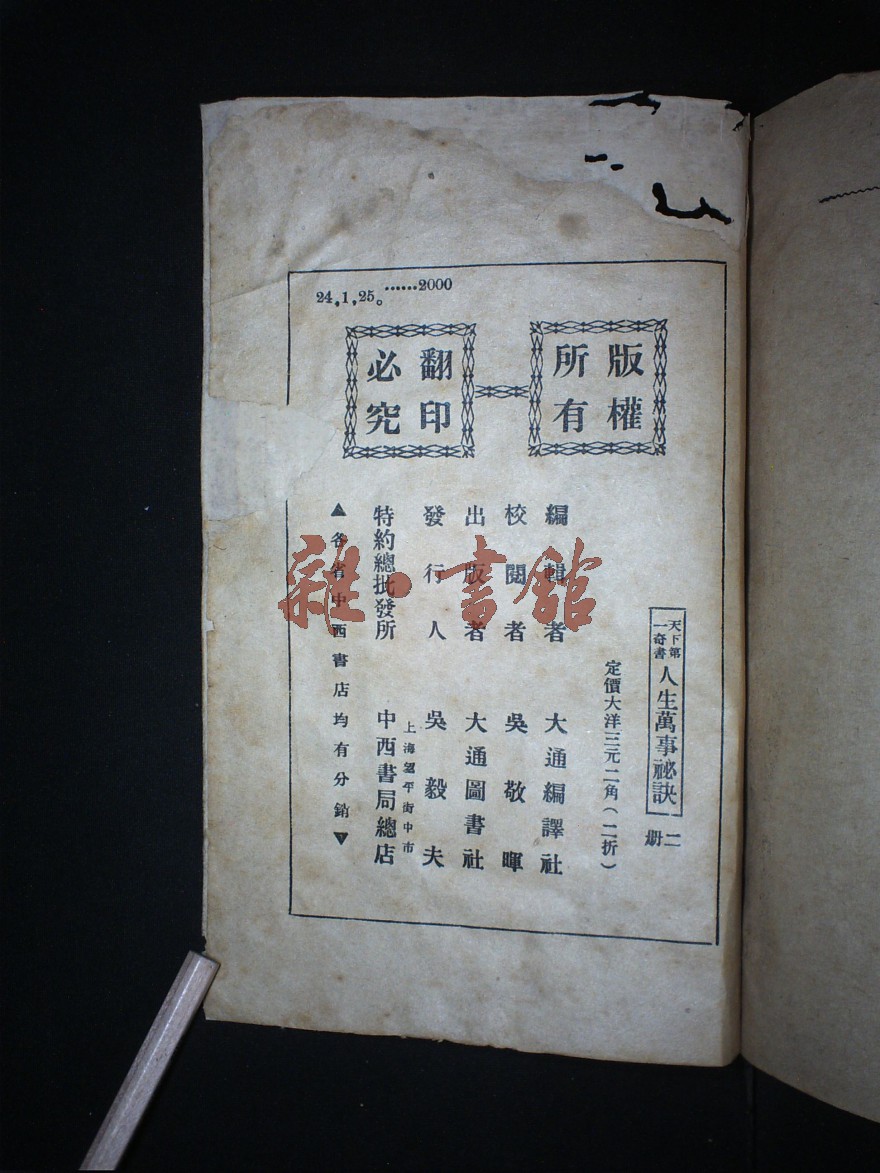 24,1,25。……2000
版權所有
翻印必究
天下第一奇書
人生萬事祕訣
二册
定價大洋三元二角(二折)
編輯者 大通編譯社
校閱者 吳敬暉
出版者 大通圖書社
發行人 吳毅夫
上海望平街中市
特約總批發所 中西書局總店
▲各省中西書店均有分銷▼
雜·書館